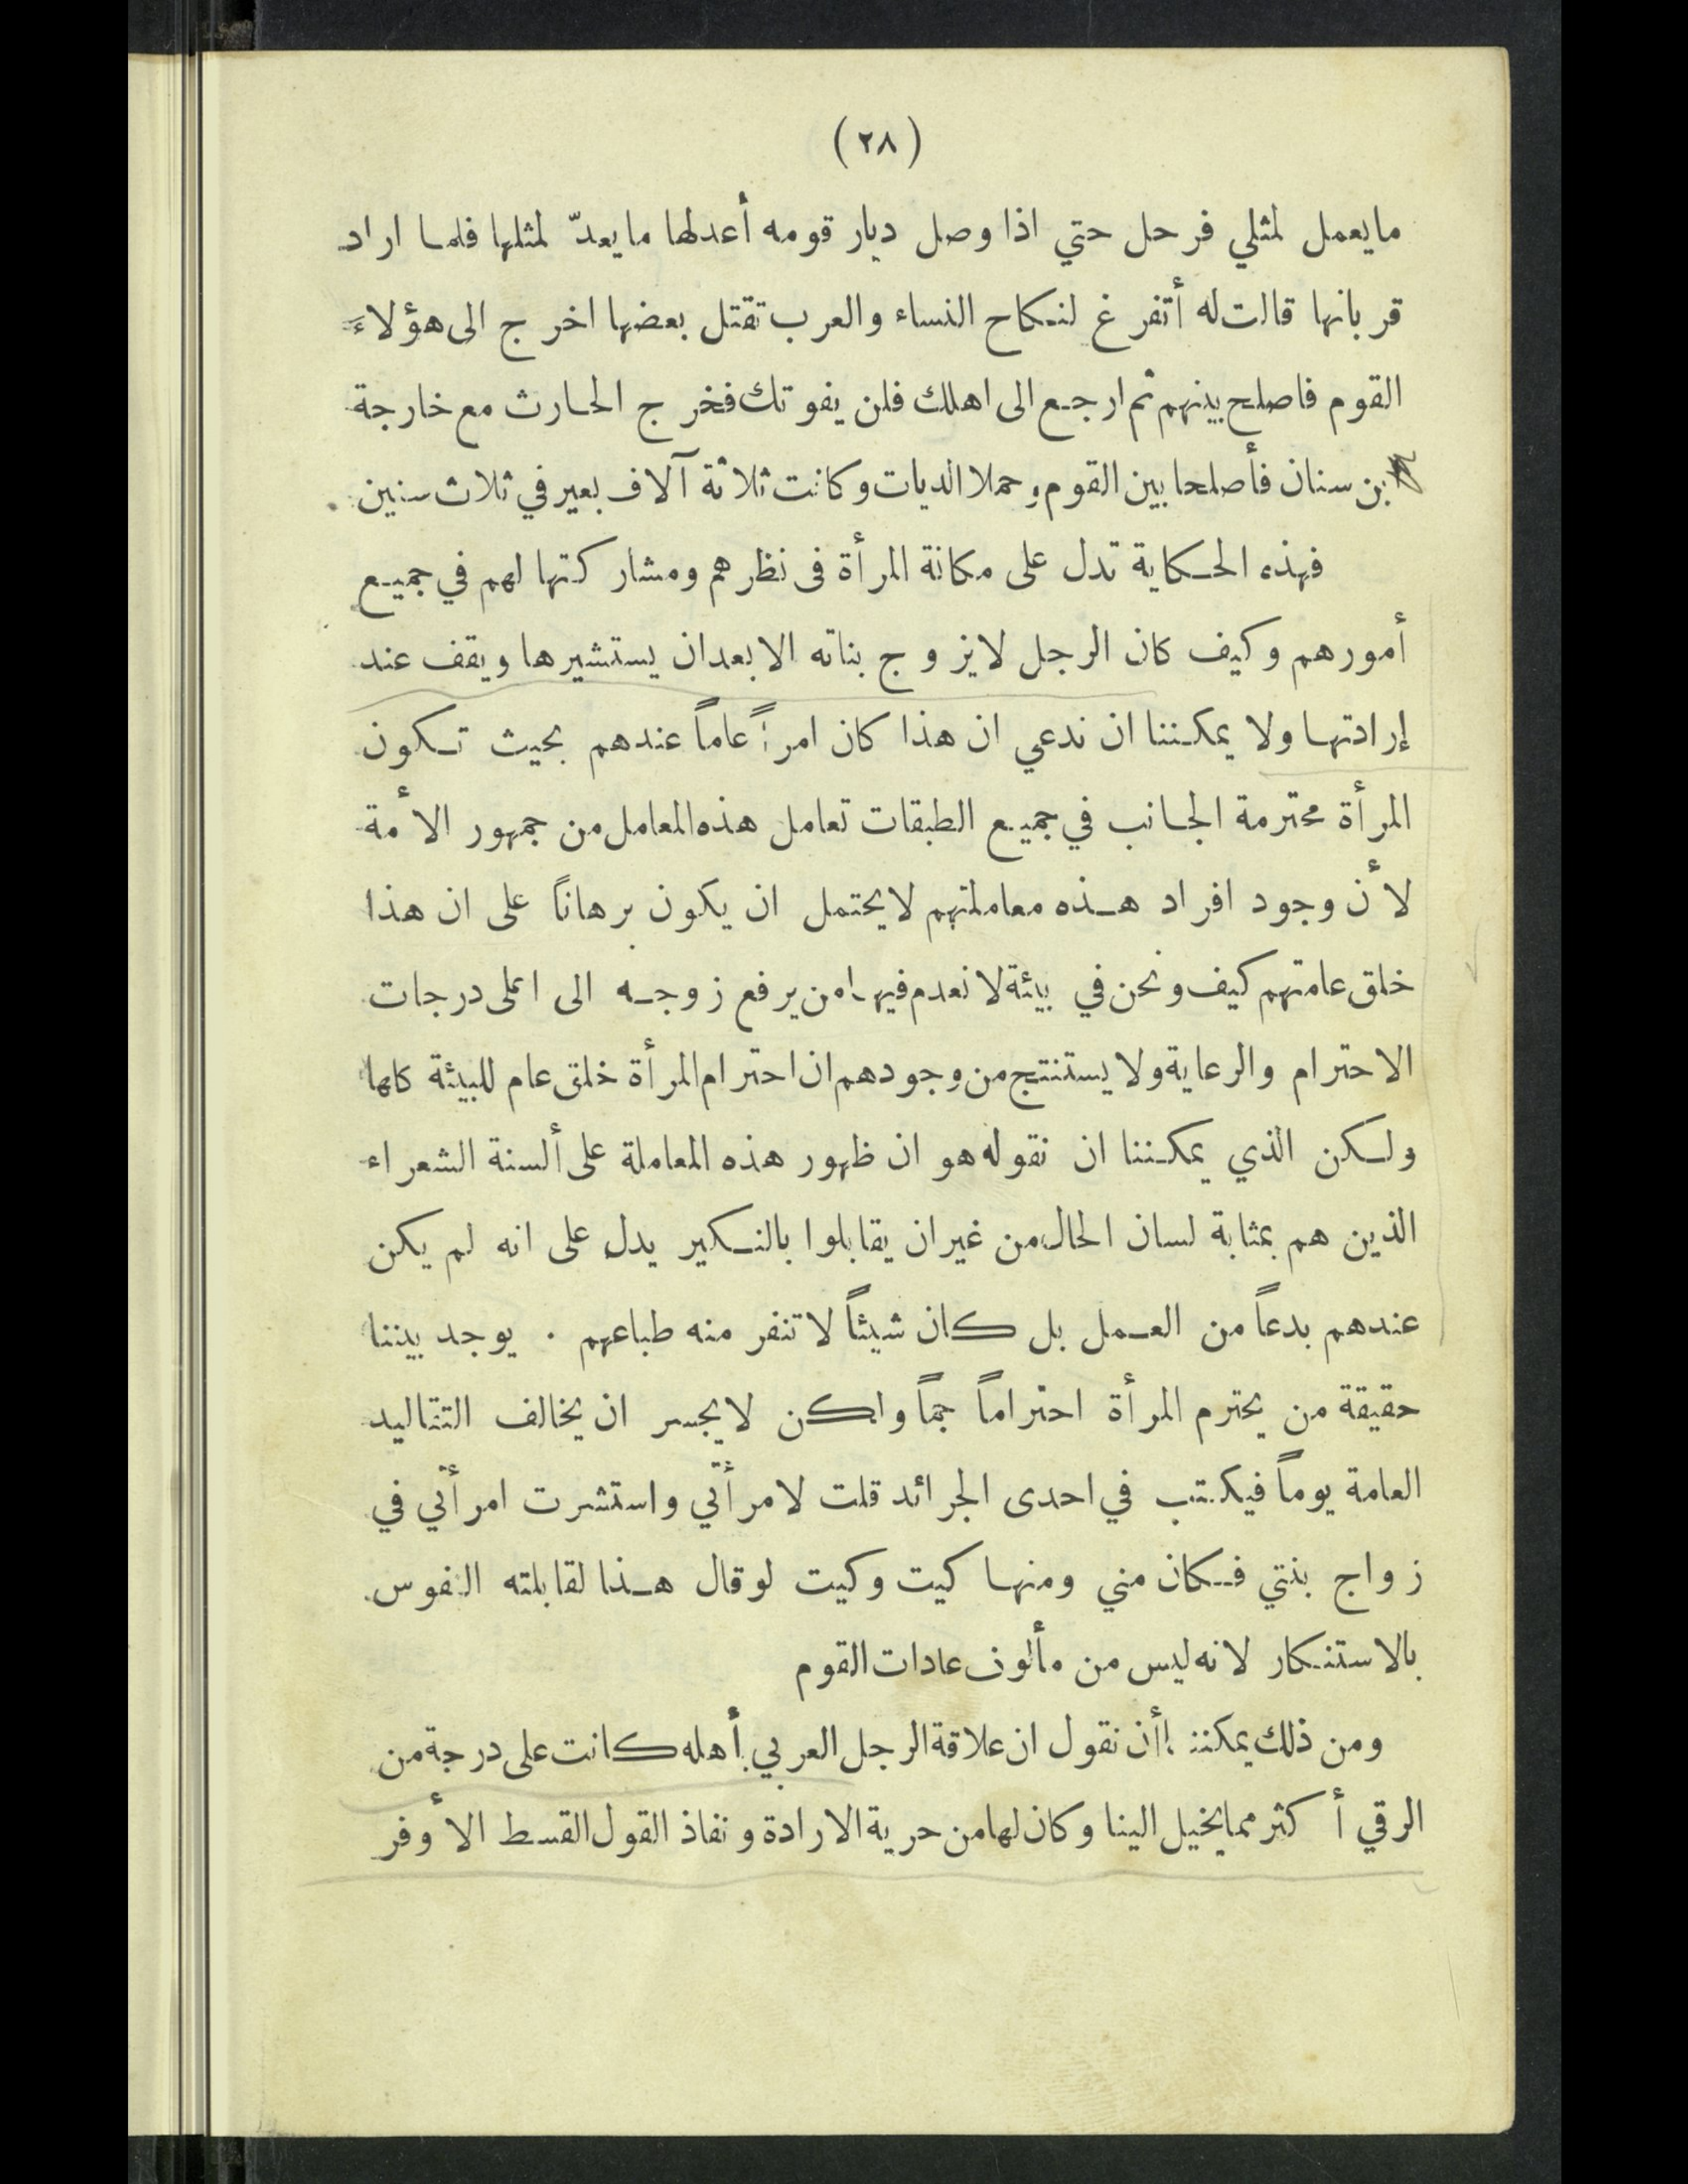 (٢٨)
ما يعمل لمثلي فرحل حتي اذا وصل ديار قومه أعد لها ما يعدّ لمثلها فلما اراد
قربانها قالت له أتفرغ لنكاح النساء والعرب تقتل بعضها اخرج الى هؤلاء
القوم فاصلح بينهم ثم ارجع الى اهلك فلن يفوتك فخرج الحارث مع خارجة
بن سنان فأصلحا بين القوم وحملا الديات وكانت ثلاثة آلاف بعير في ثلاث سنين
فهذه الحكاية تدل على مكانة المرأة فى نظرهم ومشاركتها لهم في جميع
أمورهم وكيف كان الرجل لا يزوج بناته الا بعد ان يستشيرها ويقف عند
إرادتها ولا يمكننا ان ندعي ان هذا كان امراً عاماً عندهم بحيث تكون
المرأة محترمة الجانب في جميع الطبقات تعامل هذه المعامل من جمهور الأمة
لأن وجود افراد هذه معاملتهم لا يحتمل ان يكون برهاناً على ان هذا
خلق عامتهم كيف ونحن في بيئة لا نعدم فيها من يرفع زوجه الى اعلى درجات
الاحترام والرعاية ولا يستنتج من وجودهم ان احترام المرأة خلق عام للبيئة كلها
ولكن الذي يمكننا ان نقوله هو ان ظهور هذه المعاملة على ألسنة الشعراء
الذين هم بمثابة لسان الحال من غير ان يقابلوا بالنكير يدل على انه لم يكن
عندهم بدعاً من العمل بل كان شيئاً لا تنفر منه طباعهم . يوجد بيننا
حقيقة من يحترم المرأة احتراماً جماً ولكن لا يجسر ان يخالف التقاليد
العامة يوماً فيكتب في احدى الجرائد قلت لامرأتي واستشرت امرأتي في
زواج بنتي فكان مني ومنها كيت وكيت لو قال هذا لقابلته النفوس
بالاستنكار لانه ليس من مألوف عادات القوم
ومن ذلك يمكننا أن نقول ان علاقة الرجل العربي بأهله كانت على درجة من
الرقي أكثر مما يخيل الينا وكان لها من حرية الارادة ونفاذ القول القسط الأوفر